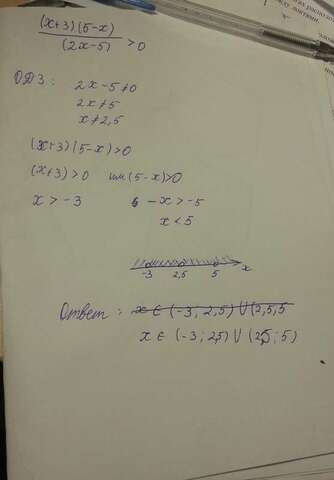 (x+3)(5-x)
(2x-5) >0
ОДЗ: 2x-5≠0
2x≠5
x≠2,5
(x+3)(5-x)>0
(x+3)>0 или (5-x)>0
x>-3 -x>-5
x<5
-3 2,5 5 x
Ответ: x ∈ (-3; 2,5) ∪ (2,5, 5
x ∈ (-3; 2,5) ∪ (2,5; 5)